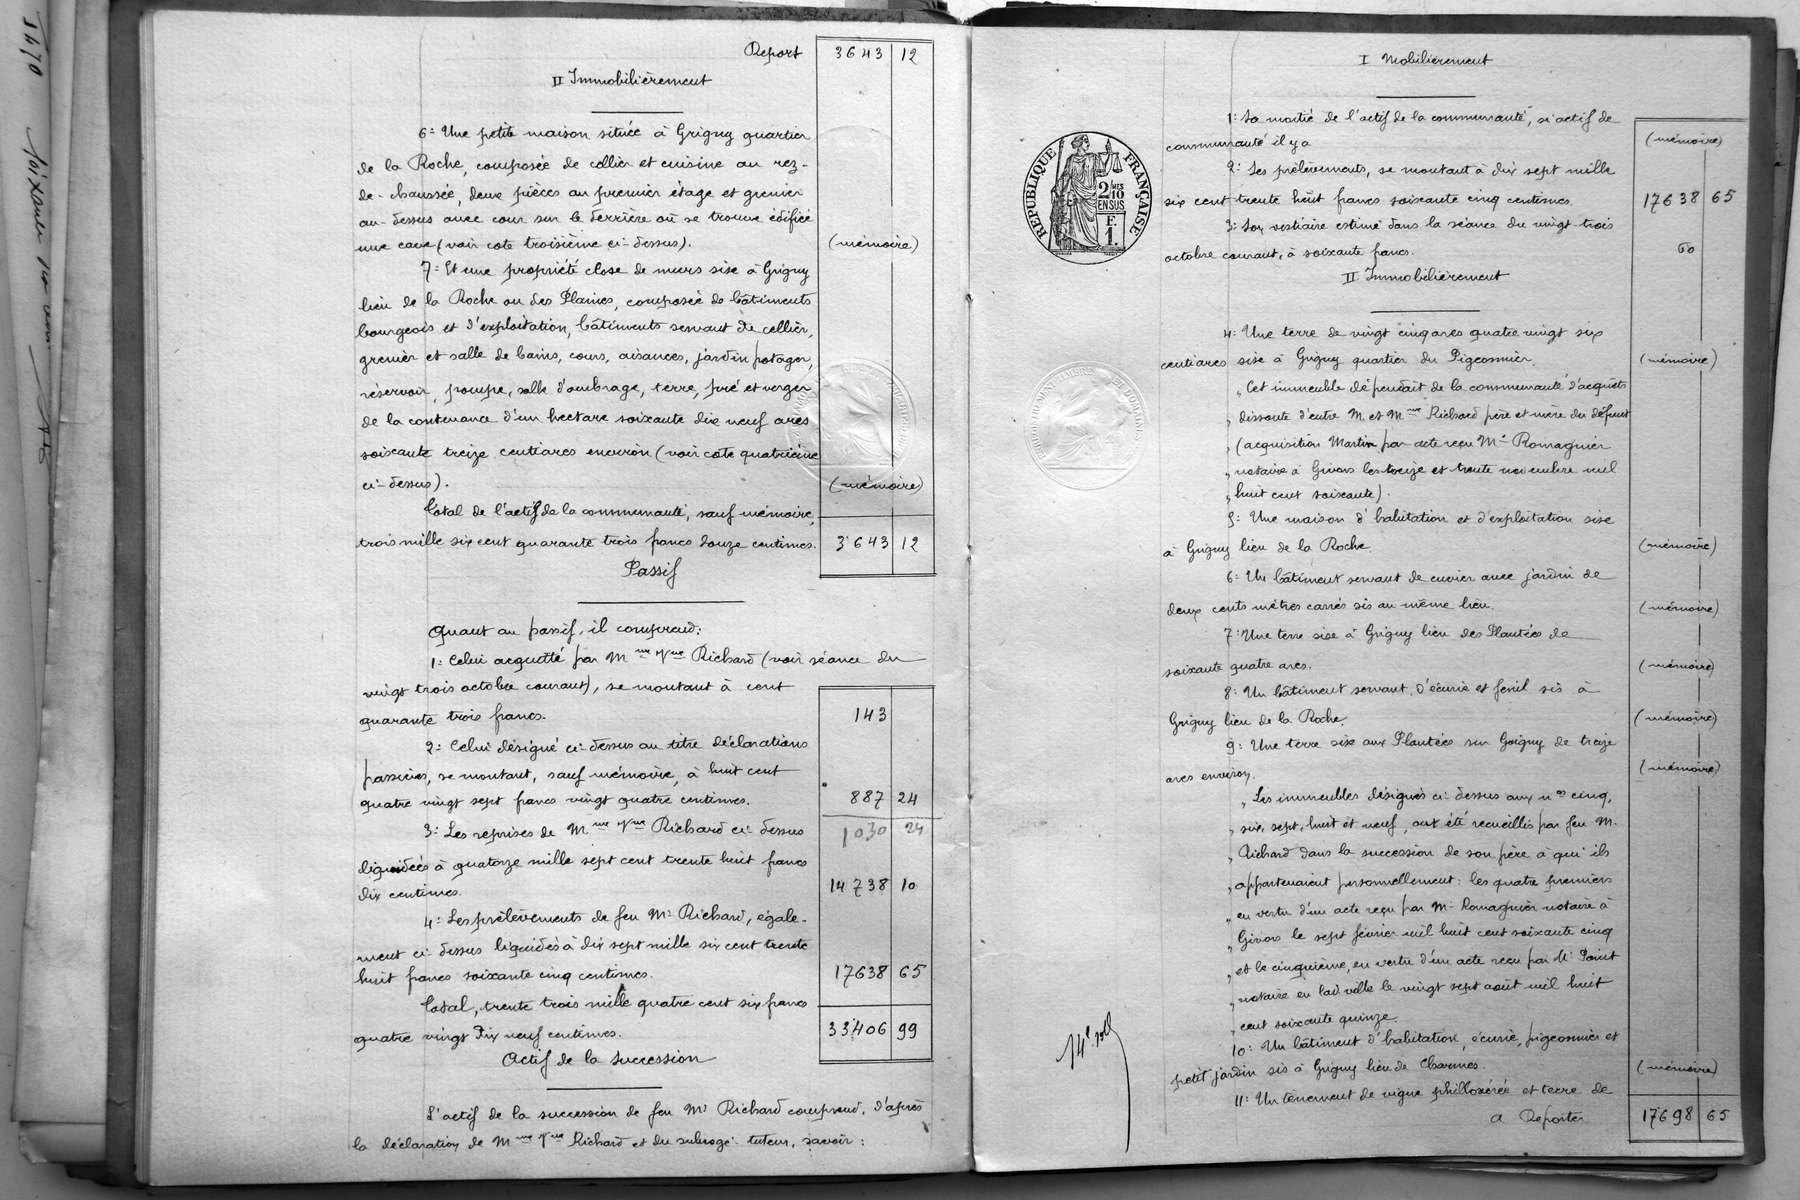 Report 3643 12
II Immobilièrement
6: Une petite maison située à Grigny quartier
de la Roche, composée de cellier et cuisine au rez-
de-chaussée, deux pièces au premier étage et grenier
au-dessus avec cour sur le derrière où se trouve édifiée
une cave (voir cote troisième ci-dessus). (mémoire)
7: Et une propriété close de murs sise à Grigny
lieu de la Roche ou des Plaines, composée de bâtiments
bourgeois et d'exploitation, bâtiments servant de cellier,
grenier et salle de bains, cours, aisances, jardin potager,
réservoir, pompe, salle d'ombrage, terre, pré et verger
de la contenance d'un hectare soixante dix neuf ares
soixante treize centiares environ (voir cote quatrième
ci-dessus). (mémoire)
Total de l'actif de la communauté, sauf mémoire,
trois mille six cent quarante trois francs douze centimes. 3643 12
Passif
Quant au passif, il comprend:
1: Celui acquitté par Mme Vve Richard (voir séance du
vingt trois octobre courant), se montant à cent
quarante trois francs. 143
2: Celui désigné ci-dessus au titre déclarations
passives, se montant, sauf mémoire, à huit cent
quatre vingt sept francs vingt quatre centimes. 887 24
1030 24
3: Les reprises de Mme Vve Richard ci-dessus
liquidées à quatorze mille sept cent trente huit francs
dix centimes. 14738 10
4: Les prélèvements de feu Mr Richard, égale-
ment ci-dessus liquidés à dix sept mille six cent trente
huit francs soixante cinq centimes. 17638 65
Total, trente trois mille quatre cent six francs
quatre vingt dix neuf centimes. 33406 99
Actif de la succession
L'actif de la succession de feu Mr Richard comprend, d'après
la déclaration de Mme Vve Richard et du subrogé-tuteur, savoir:
I Mobilièrement
1: La moitié de l'actif de la communauté, si actif de
communauté il y a (mémoire)
2: Les prélèvements, se montant à dix sept mille
six cent trente huit francs soixante cinq centimes. 17638 65
3: Son vestiaire estimé dans la séance du vingt-trois
octobre courant, à soixante francs. 60
II Immobilièrement
4: Une terre de vingt cinq ares quatre vingt six
centiares sise à Grigny quartier du Pigeonnier. (mémoire)
" Cet immeuble dépendait de la communauté d'acquêts
" dissoute d'entre M. et Mme Richard père et mère du défunt
" (acquisition Martin par acte reçu Me Romagnier
" notaire à Givors les treize et trente novembre mil
" huit cent soixante).
5: Une maison d'habitation et d'exploitation sise
à Grigny lieu de la Roche. (mémoire)
6: Un bâtiment servant de cuvier avec jardin de
deux cents mètres carrés sis au même lieu. (mémoire)
7: Une terre sise à Grigny lieu des Plantées de
soixante quatre ares. (mémoire)
8: Un bâtiment servant d'écurie et fenil sis à
Grigny lieu de la Roche. (mémoire)
9: Une terre sise aux Plantées sur Grigny de treize
ares environ. (mémoire)
" Les immeubles désignés ci-dessus aux nos cinq,
" six, sept, huit et neuf, ont été recueillis par feu M.
" Richard dans la succession de son père à qui ils
" appartenaient personnellement: les quatre premiers
" en vertu d'un acte reçu par Me Romagnier notaire à
" Givors le sept février mil huit cent soixante cinq
" et le cinquième, en vertu d'un acte reçu par Me
" notaire en lad. ville le vingt sept août mil huit
" cent soixante quinze.
10: Un bâtiment d'habitation, écurie, pigeonnier et
petit jardin sis à Grigny lieu de Charmes. (mémoire)
11: Un tènement de vigne philloxérée et terre de
A Reporter 17698 65
RÉPUBLIQUE FRANÇAISE
2/10 MES
EN SUS
F.
1.
14e